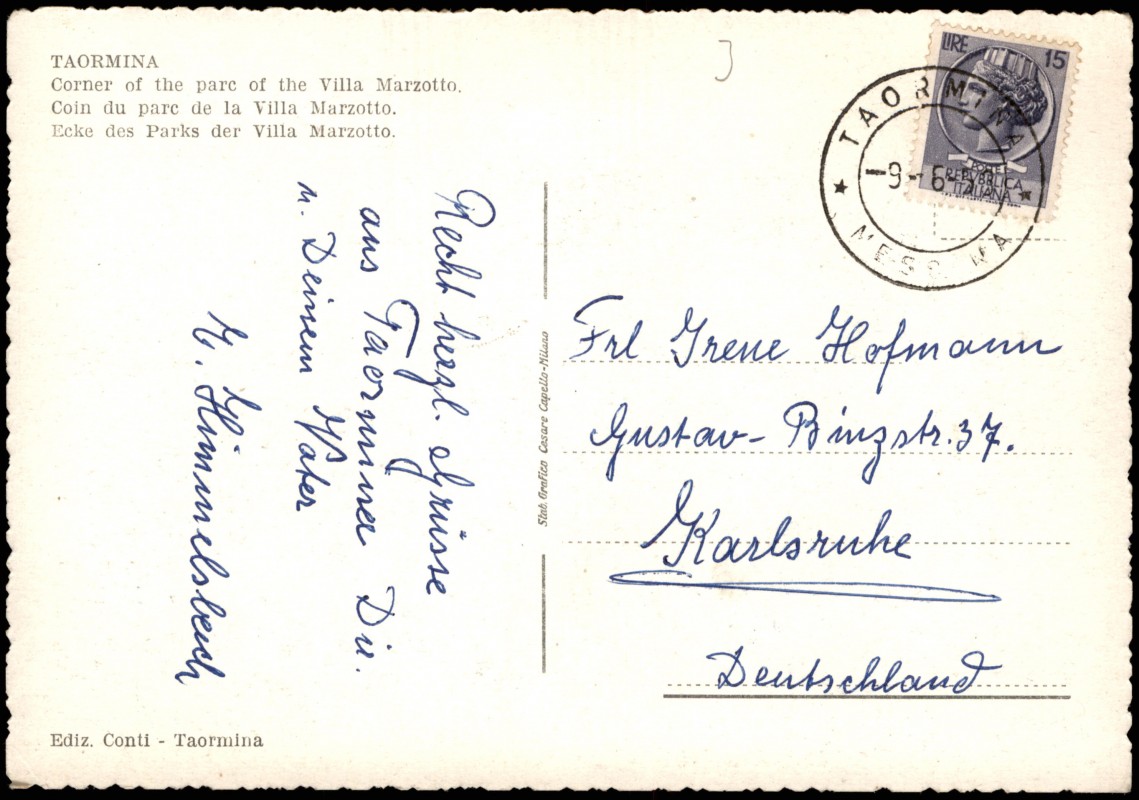 TAORMINA
Corner of the parc of the Villa Marzotto.
Coin du parc de la Villa Marzotto.
Ecke des Parks der Villa Marzotto.
J
LIRE 15
POSTE
REPVBBLICA
ITALIANA
TAORMINA
-9-6-
MESSINA
Recht herzl. Grüsse
aus Taormina Dir.
u. Deinem Vater
H. Himmelsbach
Stab. Grafico Cesare Capello-Milano
Frl Irene Hofmann
Gustav-Binzstr. 37.
Karlsruhe
Deutschland
Ediz. Conti - Taormina